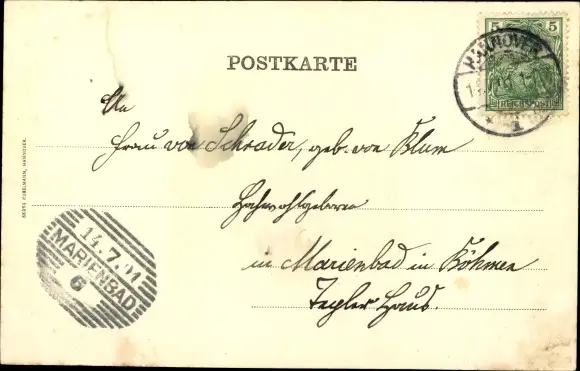 5 5
HANNOVER
REICHSPOST
1
POSTKARTE
An
Frau von Schrader, geb. von Blum
Hochwohlgeboren
in Marienbad in Böhmen
Tegler Haus.
14.7.01
MARIENBAD
6